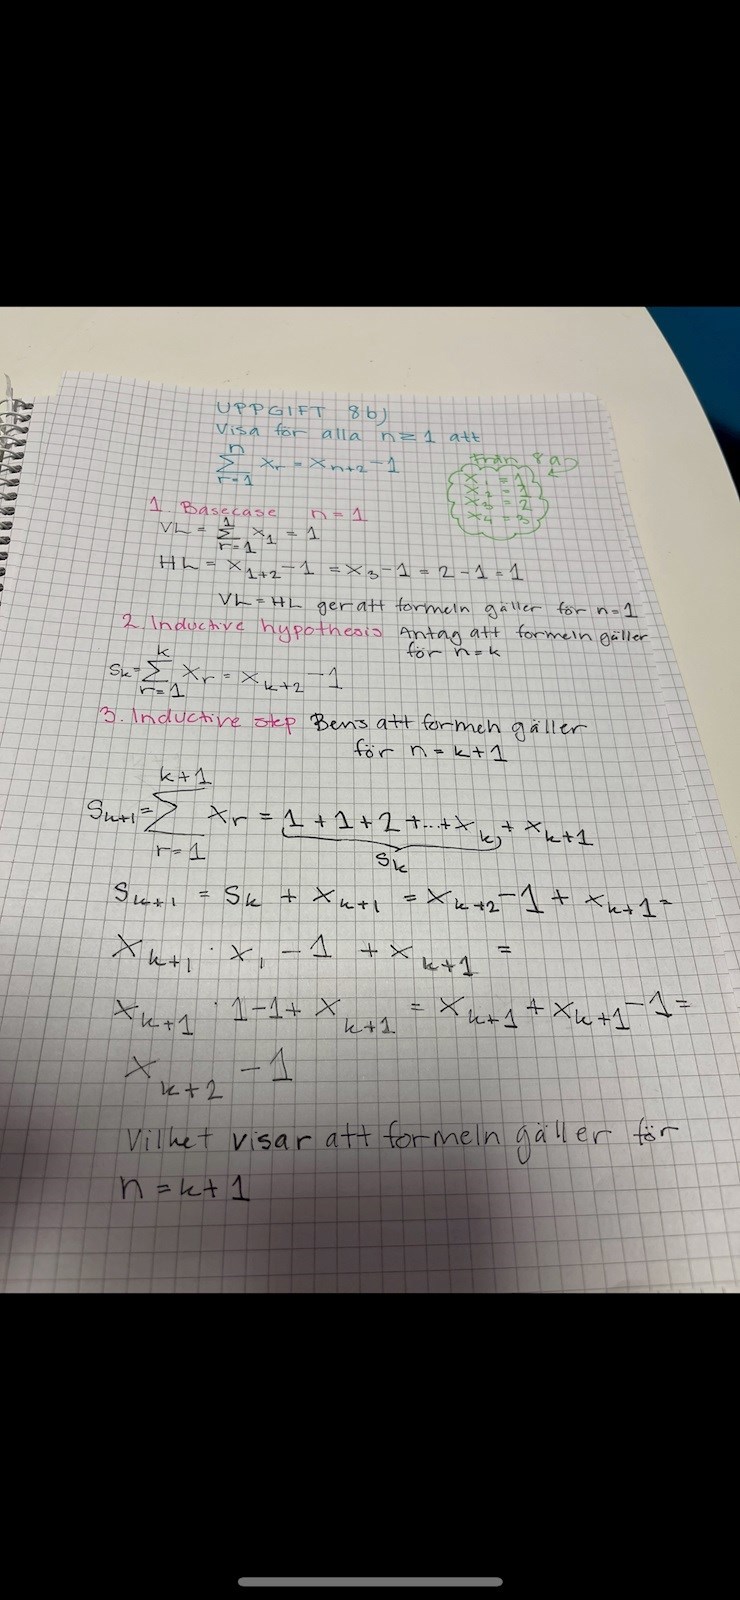 UPPGIFT 8b)
Visa för alla n ≥ 1 att
n
∑ xr = xn+2 - 1
r=1
från 8a)
x1 = 1
x2 = 1
x3 = 2
x4 = 3
1. Basecase n = 1
VL = ∑ x1 = 1
r=1
HL = x1+2 - 1 = x3 - 1 = 2 - 1 = 1
VL = HL ger att formeln gäller för n=1
2. Inductive hypothesis Antag att formeln gäller
för n = k
k
Sk = ∑ xr = xk+2 - 1
r=1
3. Inductive step Bevis att formeln gäller
för n = k+1
k+1
Sk+1 = ∑ xr = 1 + 1 + 2 + ... + xk + xk+1
r=1
Sk
Sk+1 = Sk + xk+1 = xk+2 - 1 + xk+1 =
xk+1 · x1 - 1 + xk+1 =
xk+1 · 1 - 1 + xk+1 = xk+1 + xk+1 - 1 =
xk+2 - 1
Vilket visar att formeln gäller för
n = k+1